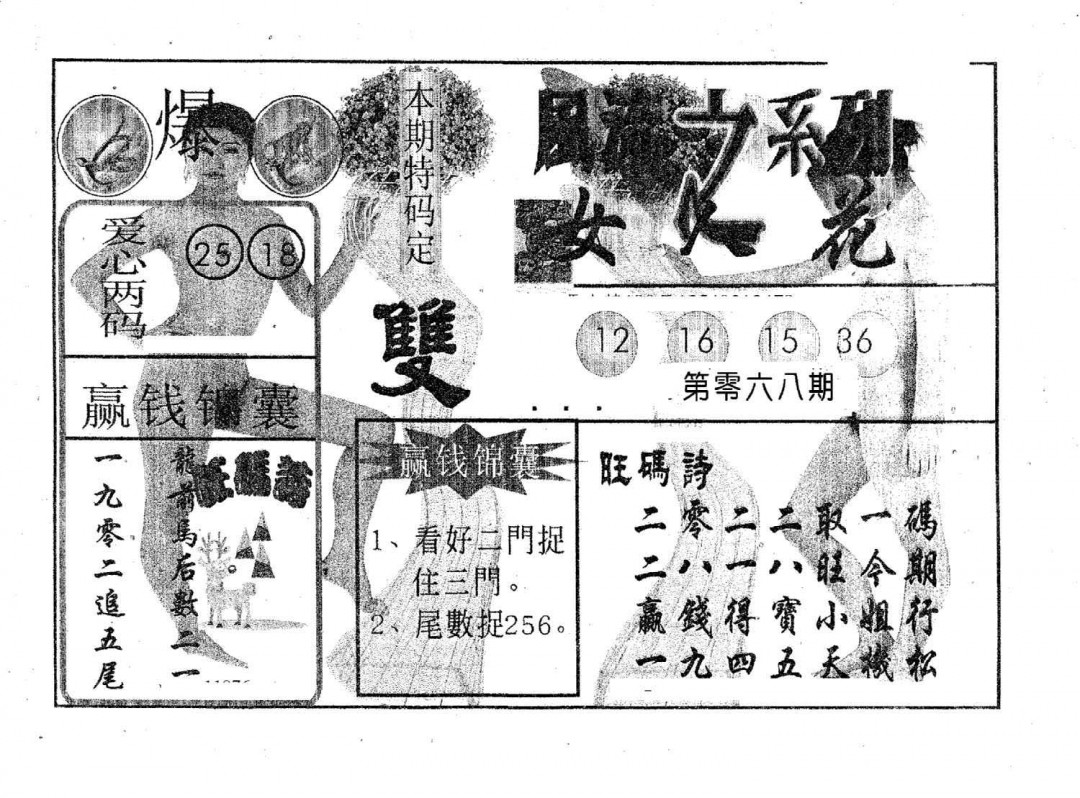 爆
本期特码定
雙
爱心两码
25 18
赢钱锦囊
一九零二追五尾
龍前馬后數二一
系列
女人花
12 16 15 36
第零六八期
赢钱锦囊
1、看好二門捉
住三門。
2、尾數捉256。
旺碼詩
二零二二取一碼
二八一八旺今期
赢錢得寶小姐行
一九四五天機松